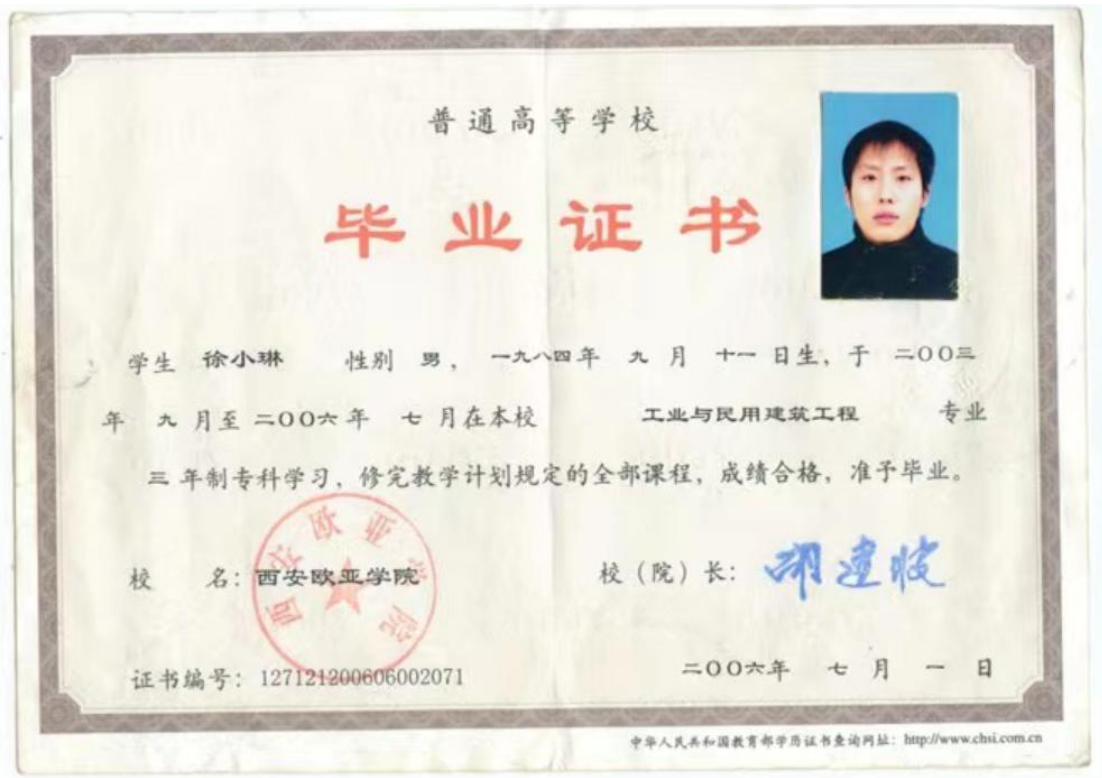 普通高等学校
毕业证书
学生 徐小琳 性别 男，一九八四年 九 月 十一 日生，于 二〇〇三
年 九 月至 二〇〇六年 七 月在本校 工业与民用建筑工程 专业
三 年制专科学习，修完教学计划规定的全部课程，成绩合格，准予毕业。
西安欧亚学院
校 名：西安欧亚学院 校（院）长：胡建波
证书编号：127121200606002071 二〇〇六年 七 月 一 日
中华人民共和国教育部学历证书查询网址：http://www.chsi.com.cn